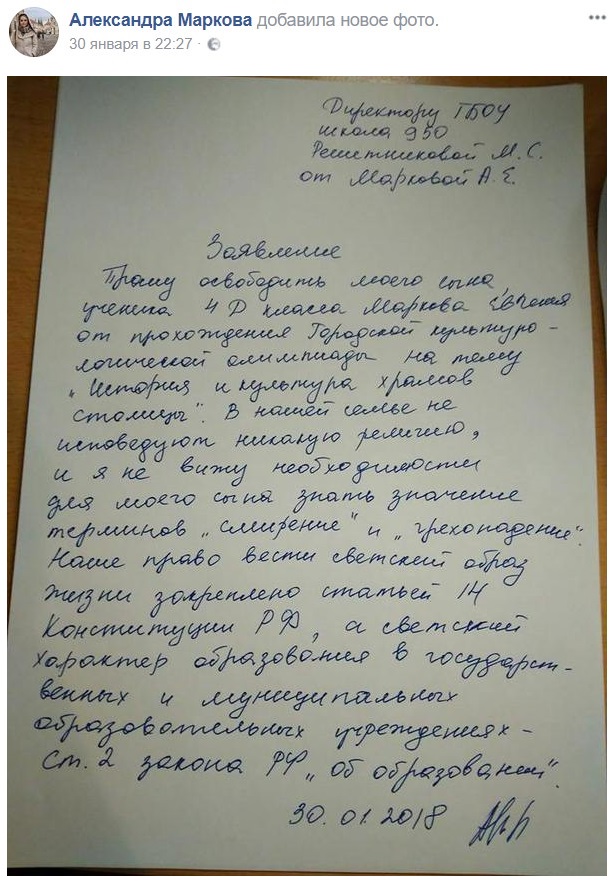 Александра Маркова добавила новое фото.
30 января в 22:27 ·
Директору ГБОУ
школа 950
Решетниковой М. С.
от Марковой А. Е.
Заявление
Прошу освободить моего сына,
ученика 4 Д класса Маркова Евгения
от прохождения Городской культуро-
логической олимпиады на тему
„История и культура храмов
столицы". В нашей семье не
исповедуют никакую религию,
и я не вижу необходимости
для моего сына знать значение
терминов „смирение" и „грехопадение".
Наше право вести светский образ
жизни закреплено статьей 14
Конституции РФ, а светский
характер образования в государст-
венных и муниципальных
образовательных учреждениях -
ст. 2 закона РФ „Об образовании".
30.01.2018